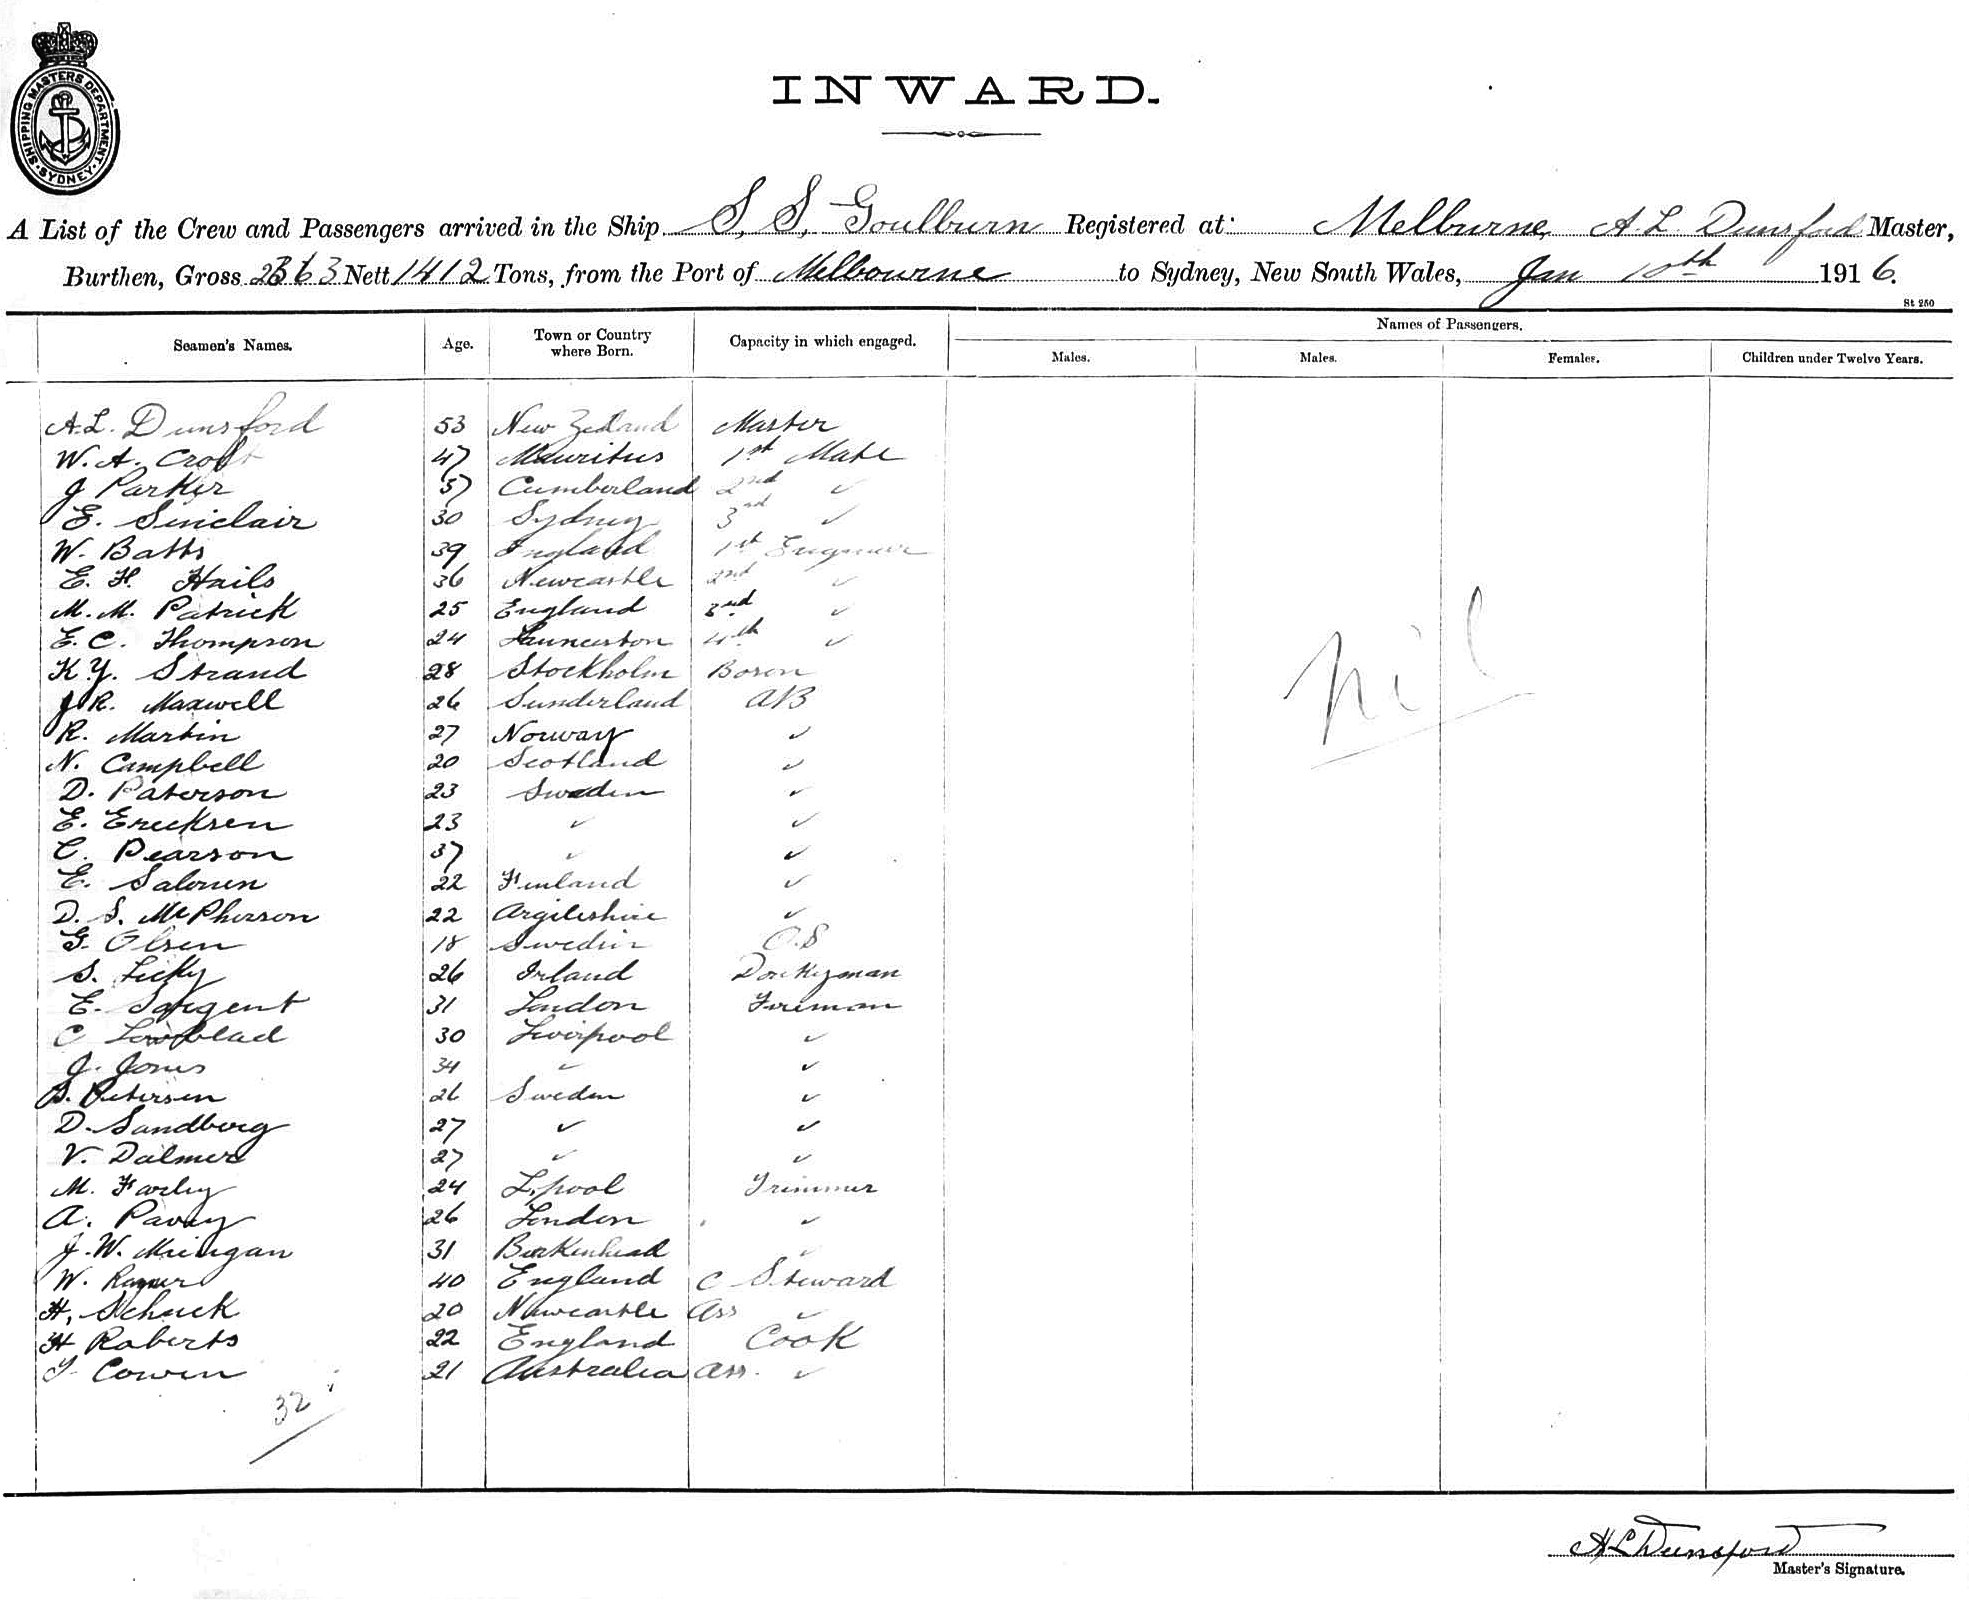 SHIPPING MASTERS DEPARTMENT · SYDNEY ·
INWARD.
A List of the Crew and Passengers arrived in the Ship S. S. Goulburn Registered at: Melburne, A L Dunsford Master,
Burthen, Gross 2363 Nett 1412 Tons, from the Port of Melbourne to Sydney, New South Wales, Jan 10th 1916.
St 250
Seamen's Names. Age. Town or Country where Born. Capacity in which engaged. Names of Passengers.
Males. Males. Females. Children under Twelve Years.
A.L. Dunsford 53 New Zealand Master
W. A. Croft 47 Mauritus 1st Mate
J Parker 57 Cumberland 2nd ✓
E. Sinclair 30 Sydney 3rd ✓
W. Batts 39 England 1st Engineer
E. H. Hails 36 Newcastle 2nd ✓
M. M. Patrick 25 England 3rd ✓
E. C. Thompson 24 Launceston 4th ✓
K. Y. Strand 28 Stockholm Bosun
J R. Maxwell 26 Sunderland AB
R. Martin 27 Norway ✓
N. Campbell 20 Scotland ✓
D. Paterson 23 Sweden ✓
E. Ericksen 23 ✓ ✓
C. Pearson 37 ✓ ✓
E. Salonen 22 Finland ✓
D. S. McPherson 22 Argileshire ✓
G. Olsen 18 Sweden O.S
S. 26 Irland Donkyman
E. Sargent 31 London Fireman
C 30 Liverpool ✓
J. Jones 34 ✓ ✓
Petersen 26 Sweden ✓
D. Sandberg 27 ✓ ✓
V. Dalmer 27 ✓ ✓
M. Farley 24 L.pool Trimmer
A. Pavey 26 London ✓
J. W. 31 Birkenhead ✓
W. 40 England C Steward
H. Schuck 20 Newcastle Ass ✓
H Roberts 22 England Cook
T. Cowen 21 Australia Ass. ✓
nil
32
A L Dunsford
Master's Signature.